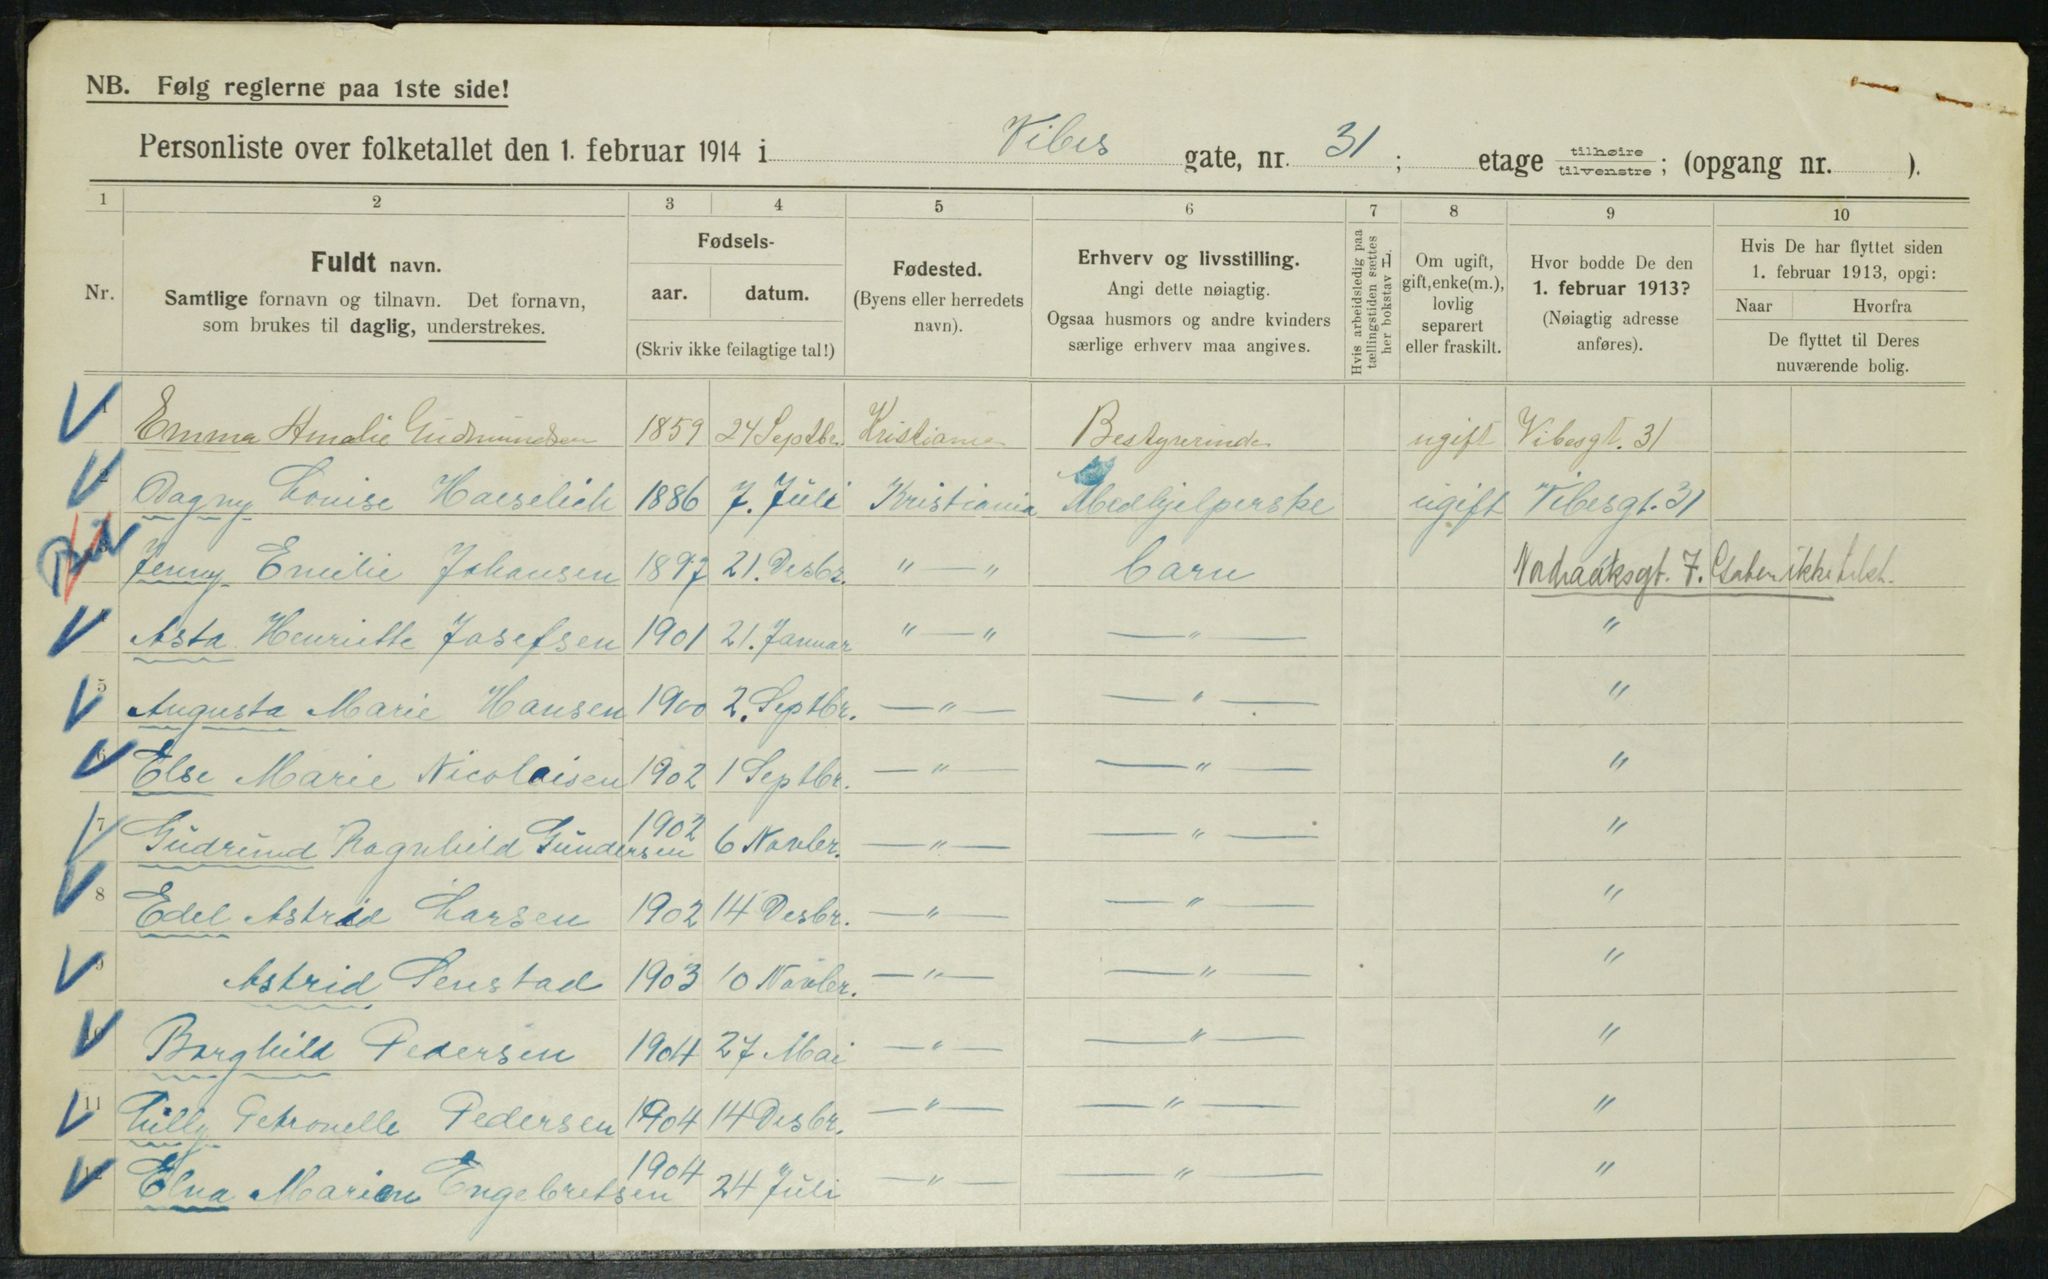 NB. Følg reglerne paa 1ste side!
Personliste over folketallet den 1. februar 1914 i Vibes gate, nr. 31 ; etage tilhøire tilvenstre ; (opgang nr. ).
1 2 3 4 5 6 7 8 9 10
Nr.
Fuldt navn.
Samtlige fornavn og tilnavn. Det fornavn,
som brukes til daglig, understrekes.
Fødsels-
aar. datum.
(Skriv ikke feilagtige tal!)
Fødested.
(Byens eller herredets
navn).
Erhverv og livsstilling.
Angi dette nøiagtig.
Ogsaa husmors og andre kvinders
særlige erhverv maa angives.
Hvis arbeidsledig paa
tællingstiden sættes
her bokstav L.
Om ugift,
gift, enke(m.),
lovlig
separert
eller fraskilt.
Hvor bodde De den
1. februar 1913?
(Nøiagtig adresse
anføres).
Hvis De har flyttet siden
1. februar 1913, opgi:
Naar Hvorfra
De flyttet til Deres
nuværende bolig.
1 Emma Amalie Gudmundsen 1859 24 Septbr. Kristiania Bestyrerinde ugift Vibesgt. 31
2 Dagny Louise Haeselich 1886 7. Juli Kristiania Medhjelperske ugift Vibesgt. 31
3 Jenny Emilie Johansen 1897 21. Desbr. " — " Barn Nordraaksgt. 7.
Asta Henriette Josefsen 1901 21. Januar " — " — " — "
5 Augusta Marie Hansen 1900 2. Septbr. — " — — " — "
6 Else Marie Nicolaisen 1902 1 Septbr. — " — — " — "
7 Gudrund Ragnhild Gundersen 1902 6 Novbr. — " — — " — "
8 Edel Astrid Larsen 1902 14 Desbr. — " — — " — "
9 Astrid Senstad 1903 10 Novbr. — " — — " — "
10 Borghild Pedersen 1904 27 Mai — " — — " — "
11 Lilly Petronelle Pedersen 1904 14 Desbr. — " — — " — "
12 Elna Marion Engebretsen 1904 24 Juli — " — — " — "